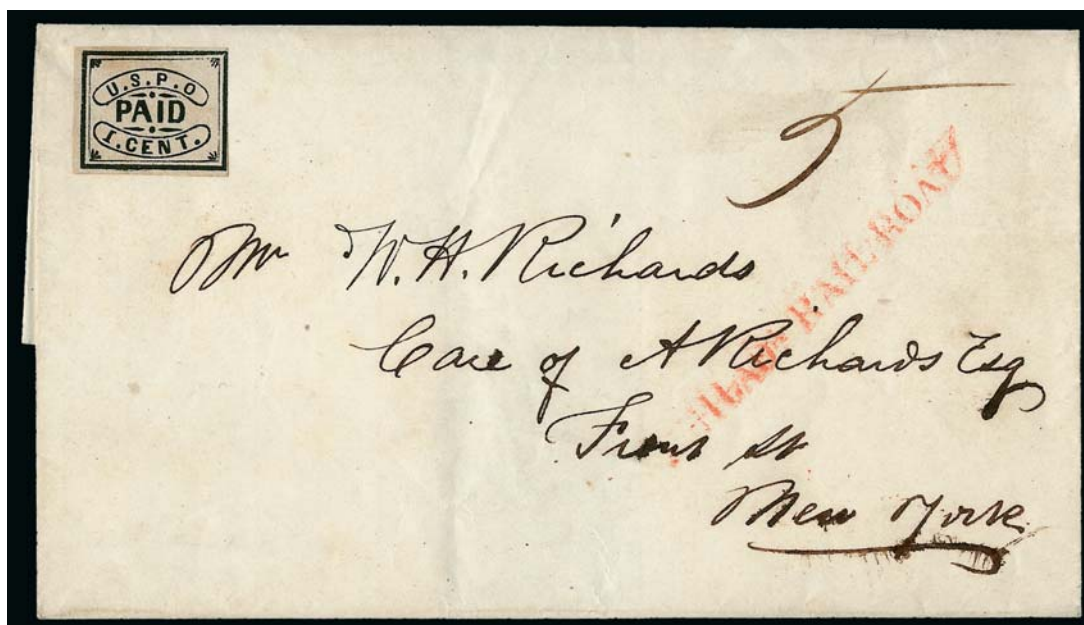 U.S.P.O
PAID
1.CENT.
5
PHILADA RAILROAD
Mr W. H. Richards
Care of A Richards Esq
Front St
New York